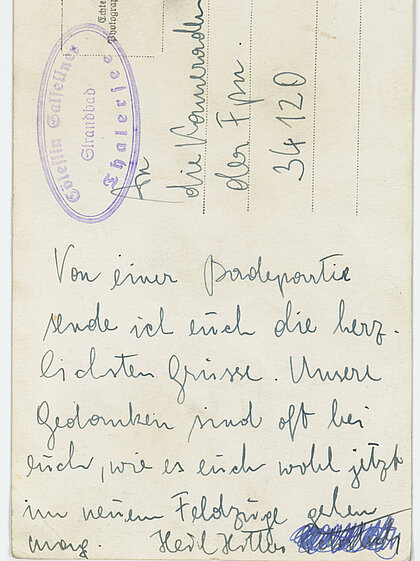 Echte
Photograph
Strandbad
Thalersee
An
die Kameraden
der Fpn.
34120
Von einer Badepartie
sende ich euch die herz-
lichsten Grüsse. Unsere
Gedanken sind oft bei
euch, wie es euch wohl jetzt
im neuem Feldzuge gehen
mag. Heil Hitler